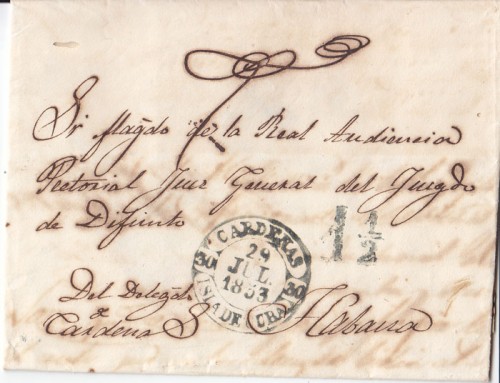 Sr Magdo de la Real Audiencia
Pretorial Juez General del Juzgdo
de Difunto
CARDENAS
29
JUL.
1853
30 30
ISLA DE CUBA
1 1/2
Del Delegdo
Cardenas
Habana